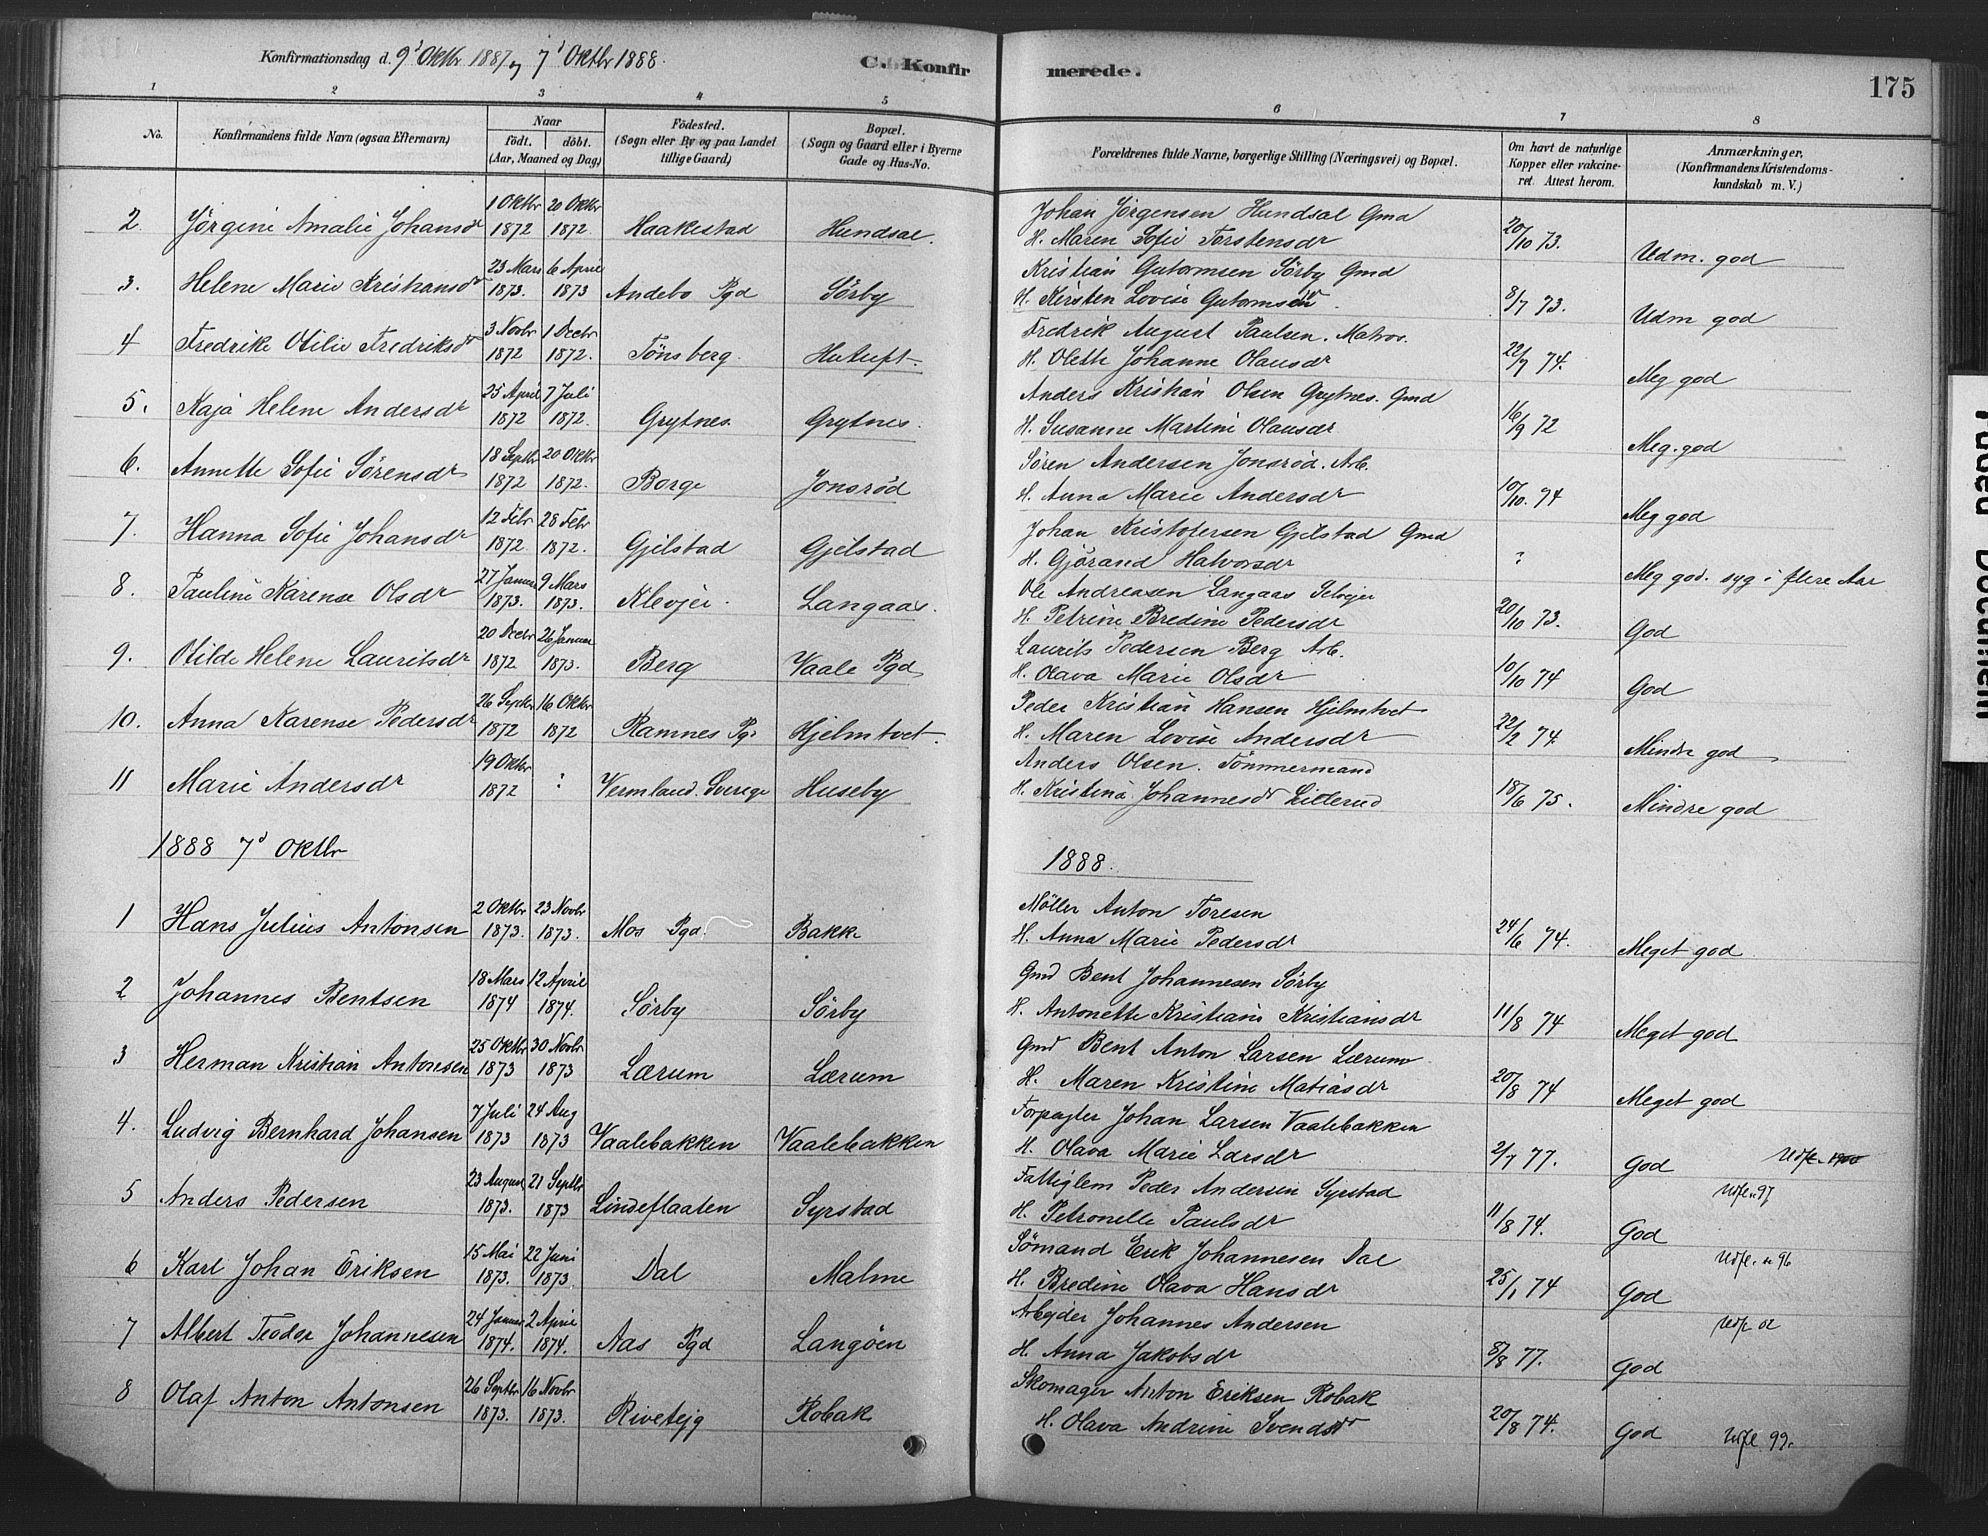 Konfirmationsdag d. 9d Oktbr 1887 og 7d Oktbr 1888. C. Konfirmerede. 175
1 2 3 4 5 6 7 8
No. Konfirmandens fulde Navn (ogsaa Efternavn) Naar født. døbt. (Aar, Maaned og Dag) Fødested. (Sogn eller By og paa Landet tillige Gaard) Bopæl. (Sogn og Gaard eller i Byerne Gade og Hus-No. Forældrenes fulde Navne, borgerlige Stilling (Næringsvei) og Bopæl. Om havt de naturlige Kopper eller vakcineret. Attest herom. Anmærkninger. (Konfirmandens Kristendomskundskab m. V.)
2. Jørgine Amalie Johansdr 1 Oktbr 1872 20 Oktbr 1872. Haakestad Hundsal. Johan Jørgensen Hundsal Gmd
H. Maren Sofie Torstensdr 20/10 73. Udm. god
3. Helene Marie Kristiansdr 23 Mars 1873. 6 April 1873 Andebo Pgd Sørby Kristian Gutormsen Sørby Gmd
H. Kirsten Lovise Gutormsdr. 8/7 73. Udm god
4 Fredrike Otilie Fredriksdr 3 Novbr 1872 1 Decbr 1872. Tønsberg. Hutuft. Fredrik August Paulsen. Matros.
H. Olette Johanne Olausdr 22/7 74. Meg god
5. Kaja Helene Andersdr 25 April 1872 7 Juli 1872. Grytnes. Grytnes. Anders Kristian Olsen Grytnes. Gmd
H. Susanne Martine Olausdr 16/9 72 Meg. god
6. Annette Sofie Sørensdr 18 Septbr 1872 20 Oktbr 1872. Borge Jonsrød Søren Andersen Jonsrød. Arb.
H. Anna Marie Andersdr 10/10. 74 Meg god
7. Hanna Sofie Johansdr 12 Febr 1872 28 Febr 1872. Gjelstad Gjelstad Johan Kristofersen Gjelstad Gmd
H. Gjørand Halvorsdr : Meg god. syg i flere Aar
8. Pauline Karense Olsdr 27 Januar 1873. 9 Mars 1873. Klevjer. Langaas. Ole Andreasen Langaas Selvejer
H. Petrine Bredine Pedersdr 20/10 73. God
9. Otilde Helene Lauritsdr 20 Decbr 1872 26 Januar 1873. Berg Vaale Pgd Laurits Pedersen Berg Arb.
H. Olava Marie Olsdr 10/10 74 God
10. Anna Karense Pedersdr 26 Septbr 1872 16 Oktbr 1872 Ramnes Pgd Hjelmtvet. Peder Kristian Hansen Hjelmtvet
H. Maren Lovise Andersdr 22/2 74. Mindre god
11 Marie Andersdr 19 Oktbr 1872 : Vermland. Sverige Huseby Anders Olsen. Tømmermand
H. Kristina Johannesdr Litterud 18/6 75. Mindre god
1888 7d Oktbr 1888.
1 Hans Julius Antonsen 2 Oktbr 1873. 23 Novbr 1873. Mos Pgd. Bakke Møller Anton Toresen
H. Anna Marie Pedersdr 24/6 74. Meget god
2 Johannes Bentsen 18 Mars 1874 12 April 1874. Sørby Sørby Gmd Bent Johannesen Sørby
H. Antonette Kristiane Kristiansdr 11/8 74 Meget god
3 Herman Kristian Antonsen 25 Oktbr 1873 30 Novbr 1873 Lærum Lærum Gmd Bent Anton Larsen Lærum
H. Maren Kristine Matiasdr 20/8 74 Meget god
4. Ludvig Bernhard Johansen 7 Juli 1873 24 Aug 1873 Vaalebakken Vaalebakken Forpagter Johan Larsen Vaalebakken
H. Olava Marie Larsdr 2/7 77. God Udfl.
5 Anders Pedersen 23 August 1873. 21 Septbr 1873 Lindeflaaten Syrstad Fattiglem Peder Andersen Syrstad
H. Petronelle Paulsdr 11/8 74. God Udfl. 97
6 Karl Johan Eriksen 15 Mai 1873. 22 Juni 1873. Dal Malme Sømand Erik Johannesen Dal
H. Bredine Olava Hansdr 25/1 74 God Udfl. 96
7 Albert Teodor Johannesen 24 Januar 1874. 2 April 1874. Aas Pgd Langøen Arbejder Johannes Andersen
H. Anna Jakobsdr 8/8 77. God Udfl. 02
8 Olaf Anton Antonsen 26 Septbr 1873. 16 Novbr 1873. Rivetejg Robak Skomager Anton Eriksen Robak
H. Olava Andrine Svendsdr 20/8 74. God Udfl. 99.